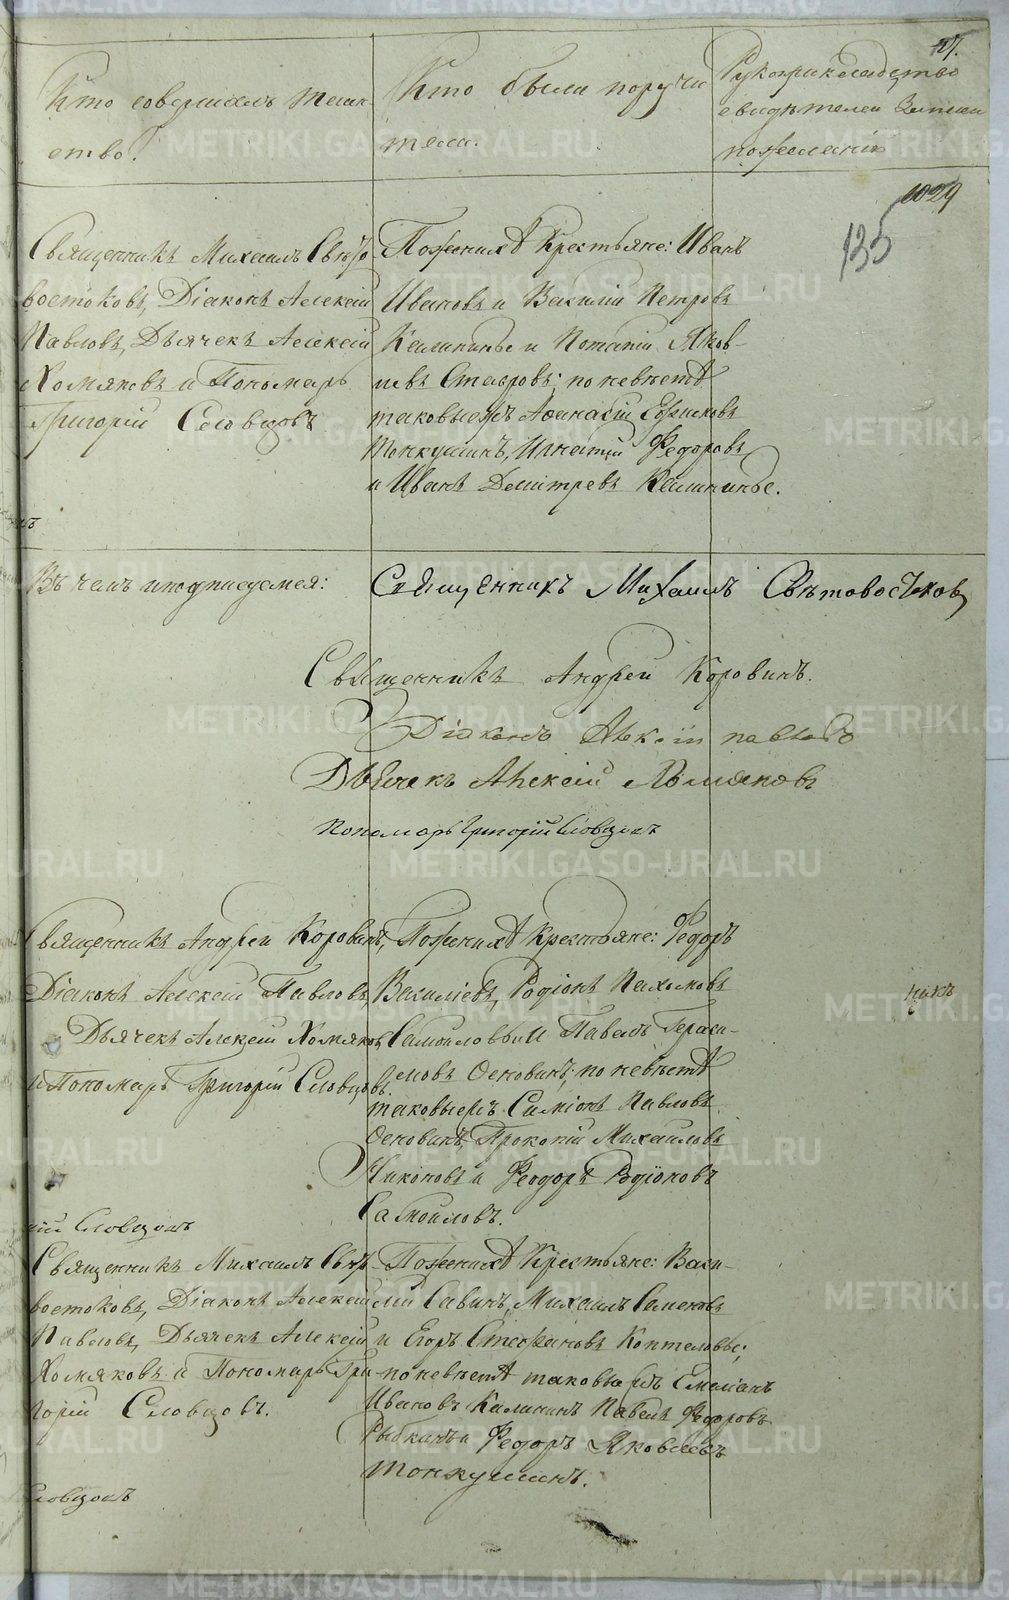 47.
Кто совершалъ таин-
ство.
Кто были поручи
тели.
Рукоприкладство
свидѣтелей записи
по желанію
1029
135
Священникъ Михаилъ Свѣто
востоковъ, Діаконъ Алексій
Павловъ, Дьячекъ Алексій
Хомяковъ и Пономарь
Григорій Словцовъ.
По женихѣ Крестьяне: Иванъ
Ивановъ и Василій Петровъ
Калинины и Потапій Яков-
левъ Ставровъ; по невѣстѣ
таковыежъ Афанасій Ефимовъ
Тонкушинъ, Игнатій Федоровъ
и Иванъ Дмитревъ Калинины.
Въ чемъ и подписуемся:
Священникъ Михаилъ Свѣтовостоковъ
Священникъ Андрей Коровинъ.
Діаконъ Алексій Павловъ
Дьячекъ Алексій Хомяковъ
Пономарь Григорій Словцовъ
Священникъ Андрей Коровинъ,
Діаконъ Алексій Павловъ,
Дьячекъ Алексій Хомяковъ
и Пономарь Григорій Словцовъ.
По женихѣ Крестьяне: Федоръ
Василіевъ, Родіонъ Пахомовъ
Самойловы и Павелъ Гераси-
мовъ Осковинъ; по невѣстѣ
таковыежъ Симіонъ Павловъ
Осковинъ, Прокопій Михайловъ
Никоновъ и Феодоръ Родіоновъ
Самойловъ.
никъ
ій Словцовъ
Священникъ Михаилъ Свѣто-
востоковъ, Діаконъ Алексій
Павловъ, Дьячекъ Алексій
Хомяковъ и Пономарь Гри
горій Словцовъ.
По женихѣ Крестьяне: Васи-
лій Савинъ, Михаилъ Семеновъ
и Егоръ Стефановъ Коптеловы;
по невѣстѣ таковыежъ Емелианъ
Ивановъ Калининъ Павелъ Федоровъ
Рыбкинъ и Федоръ Яковлевъ
Тонкушинъ.
Словцовъ
METRIKI.GASO-URAL.RU